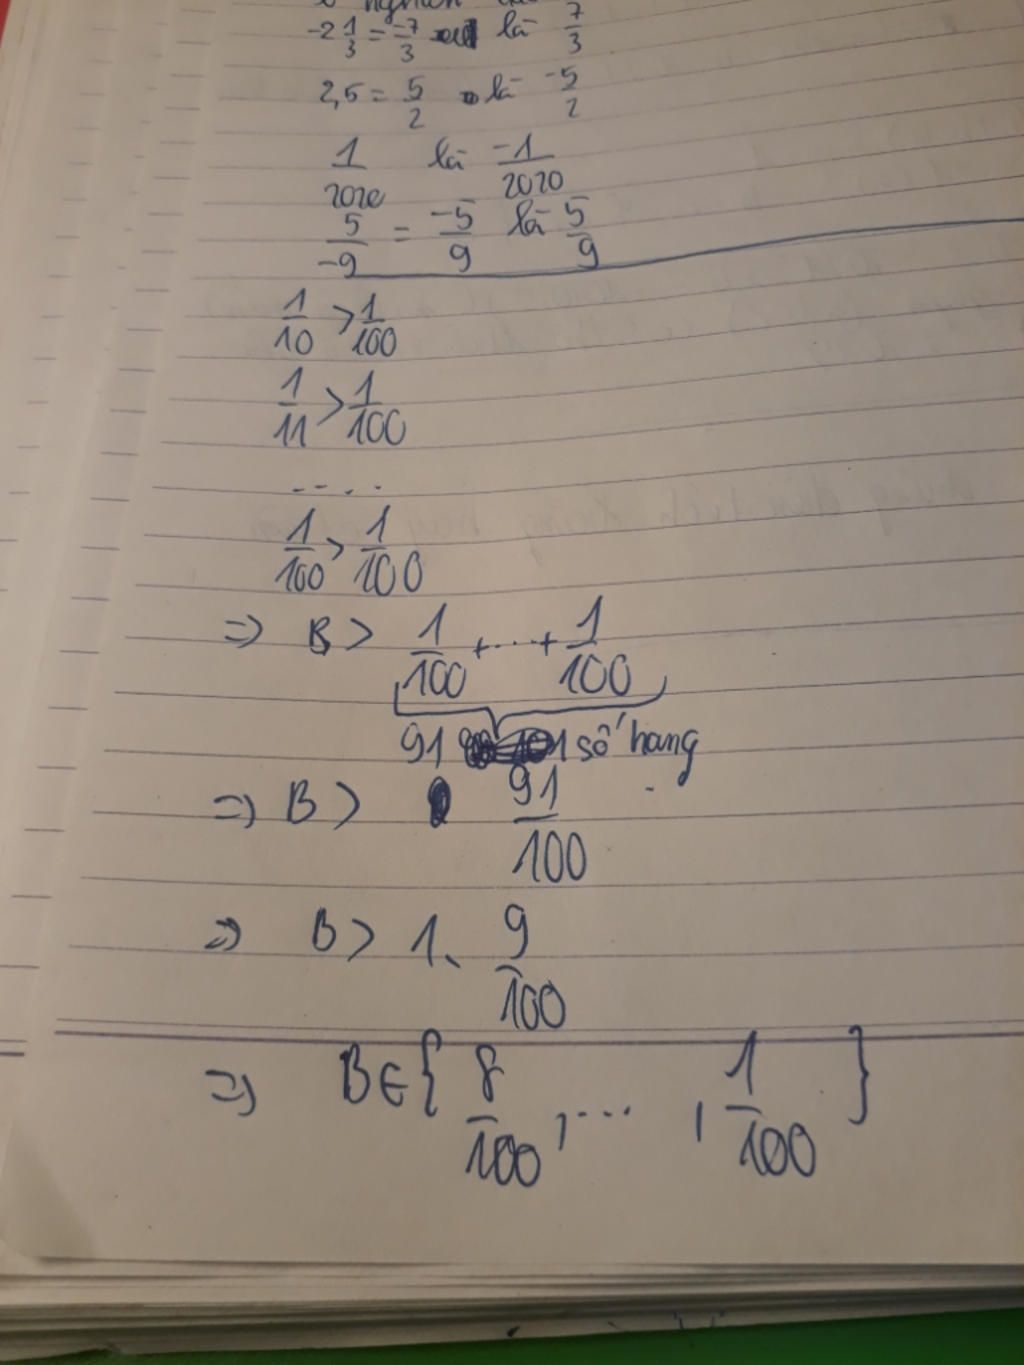 -2 1/3 = -7/3 là 7/3
2,5 = 5/2 là -5/2
1/2020 là -1/2020
5/-9 = -5/9 là 5/9
1/10 > 1/100
1/11 > 1/100
....
1/100 > 1/100
=> B > 1/100 + ... + 1/100
91 số hang
=> B > 91/100
=> B > 1. 9/100
=> B ∈ { 8/100 , ... , 1/100 }